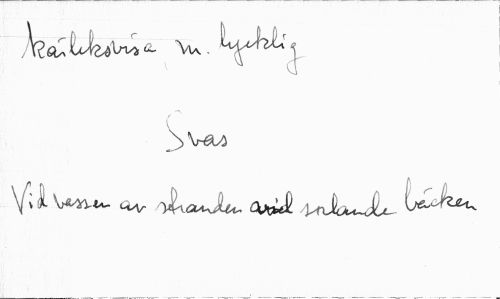 Kärleksvisa m. lycklig
Svas
Vid vassen av stranden vid sorlande bäcken